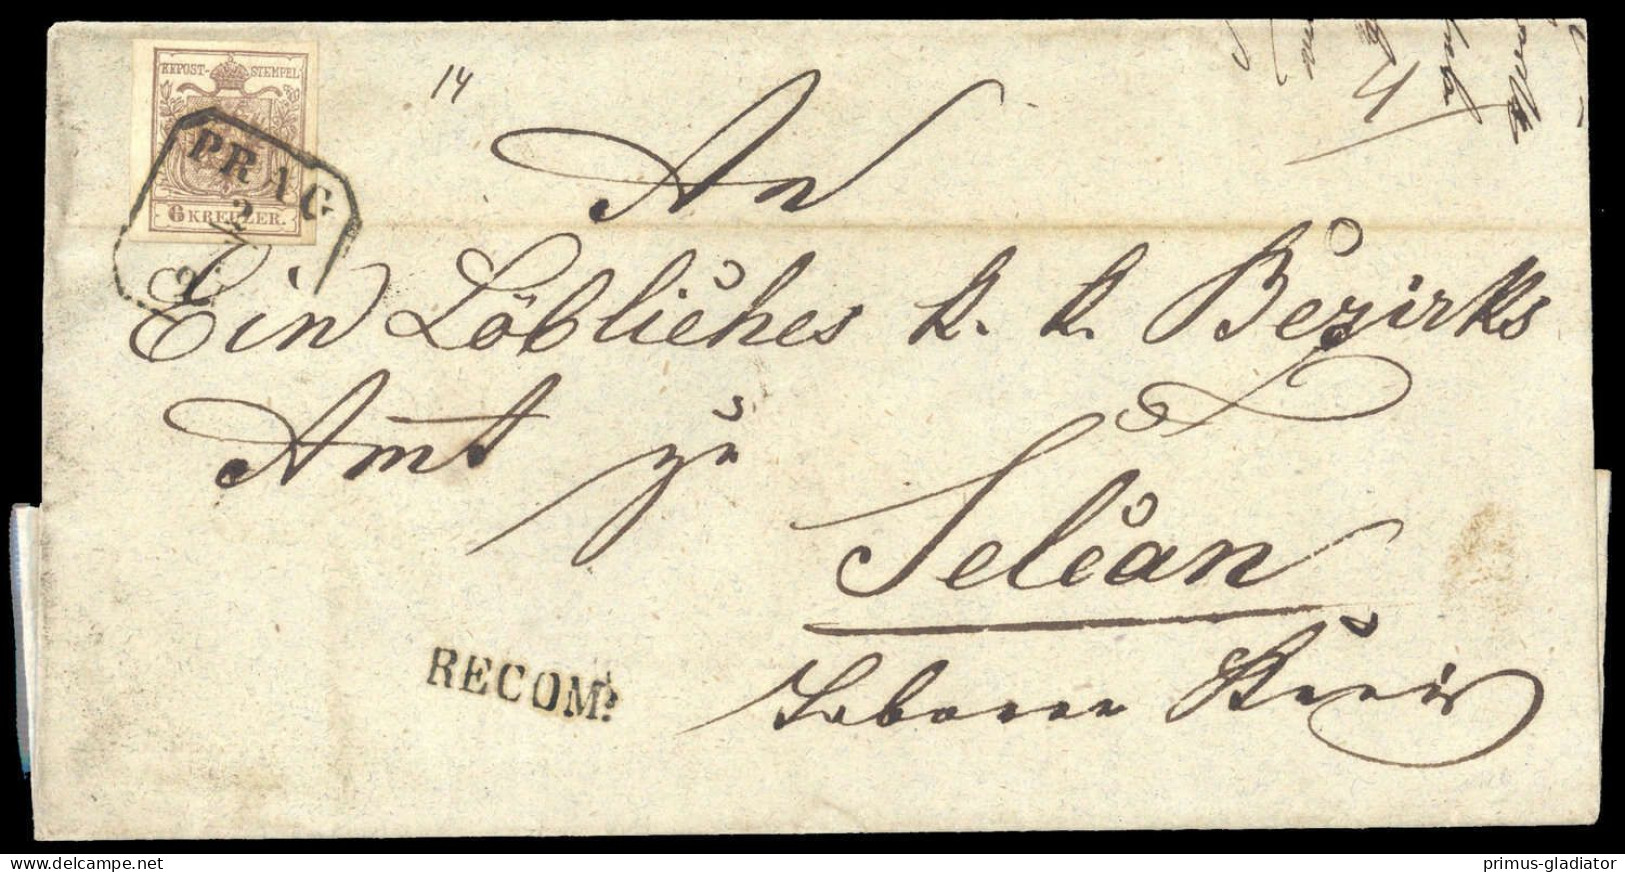 KKPOST-STEMPEL
6 KREUZER.
PRAG
2
7
14
An
Ein Löbliches k. k. Bezirks
Amt zu
Selčan
Taborer Kreis
RECOM:
www.delcampe.net
primus-gladiator